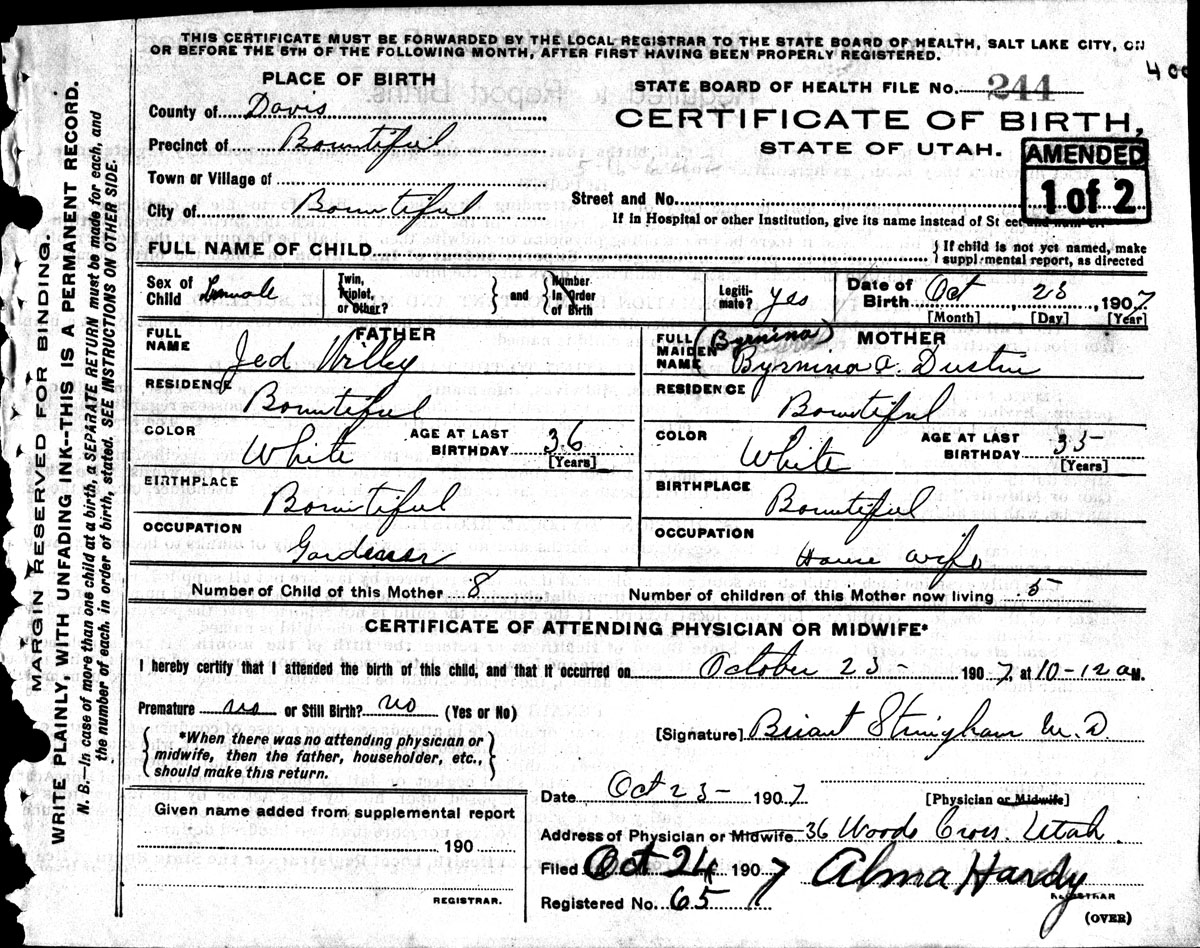 THIS CERTIFICATE MUST BE FORWARDED BY THE LOCAL REGISTRAR TO THE STATE BOARD OF HEALTH, SALT LAKE CITY, ON
OR BEFORE THE 5TH OF THE FOLLOWING MONTH, AFTER FIRST HAVING BEEN PROPERLY REGISTERED.
400
PLACE OF BIRTH
STATE BOARD OF HEALTH FILE No. 244
County of Davis
CERTIFICATE OF BIRTH,
Precinct of Bountiful
STATE OF UTAH.
AMENDED
1 of 2
Town or Village of
Street and No.
City of Bountiful
If in Hospital or other Institution, give its name instead of St
FULL NAME OF CHILD
If child is not yet named, make
supplemental report, as directed
Sex of
Child Female
Twin,
Triplet,
or Other?
and
Number
in Order
of Birth
Legiti-
mate? yes
Date of
Birth Oct 23, 1907
[Month] [Day] [Year]
FATHER
FULL
NAME Jed Willey
MOTHER
FULL
MAIDEN
NAME
(Byrnina)
Byrnina A. Dustin
RESIDENCE
Bountiful
RESIDENCE
Bountiful
COLOR
White
AGE AT LAST
BIRTHDAY 36
[Years]
COLOR
White
AGE AT LAST
BIRTHDAY 35
[Years]
BIRTHPLACE
Bountiful
BIRTHPLACE
Bountiful
OCCUPATION
Gardener
OCCUPATION
House wife
Number of Child of this Mother 8
Number of children of this Mother now living 5
CERTIFICATE OF ATTENDING PHYSICIAN OR MIDWIFE*
I hereby certify that I attended the birth of this child, and that it occurred on October 23- 1907, at 10-12 a M.
Premature no or Still Birth? no (Yes or No)
*When there was no attending physician or
midwife, then the father, householder, etc.,
should make this return.
[Signature] Briant Stringham M.D.
Date Oct 23- 1907
[Physician or Midwife]
Given name added from supplemental report
190
REGISTRAR.
Address of Physician or Midwife 36 Woods Cross. Utah
Filed Oct 24 1907 Alma Hardy
REGISTRAR
Registered No. 65
(OVER)
MARGIN RESERVED FOR BINDING.
WRITE PLAINLY, WITH UNFADING INK--THIS IS A PERMANENT RECORD.
N. B.--In case of more than one child at a birth, a SEPARATE RETURN must be made for each, and
the number of each, in order of birth, stated. SEE INSTRUCTIONS ON OTHER SIDE.